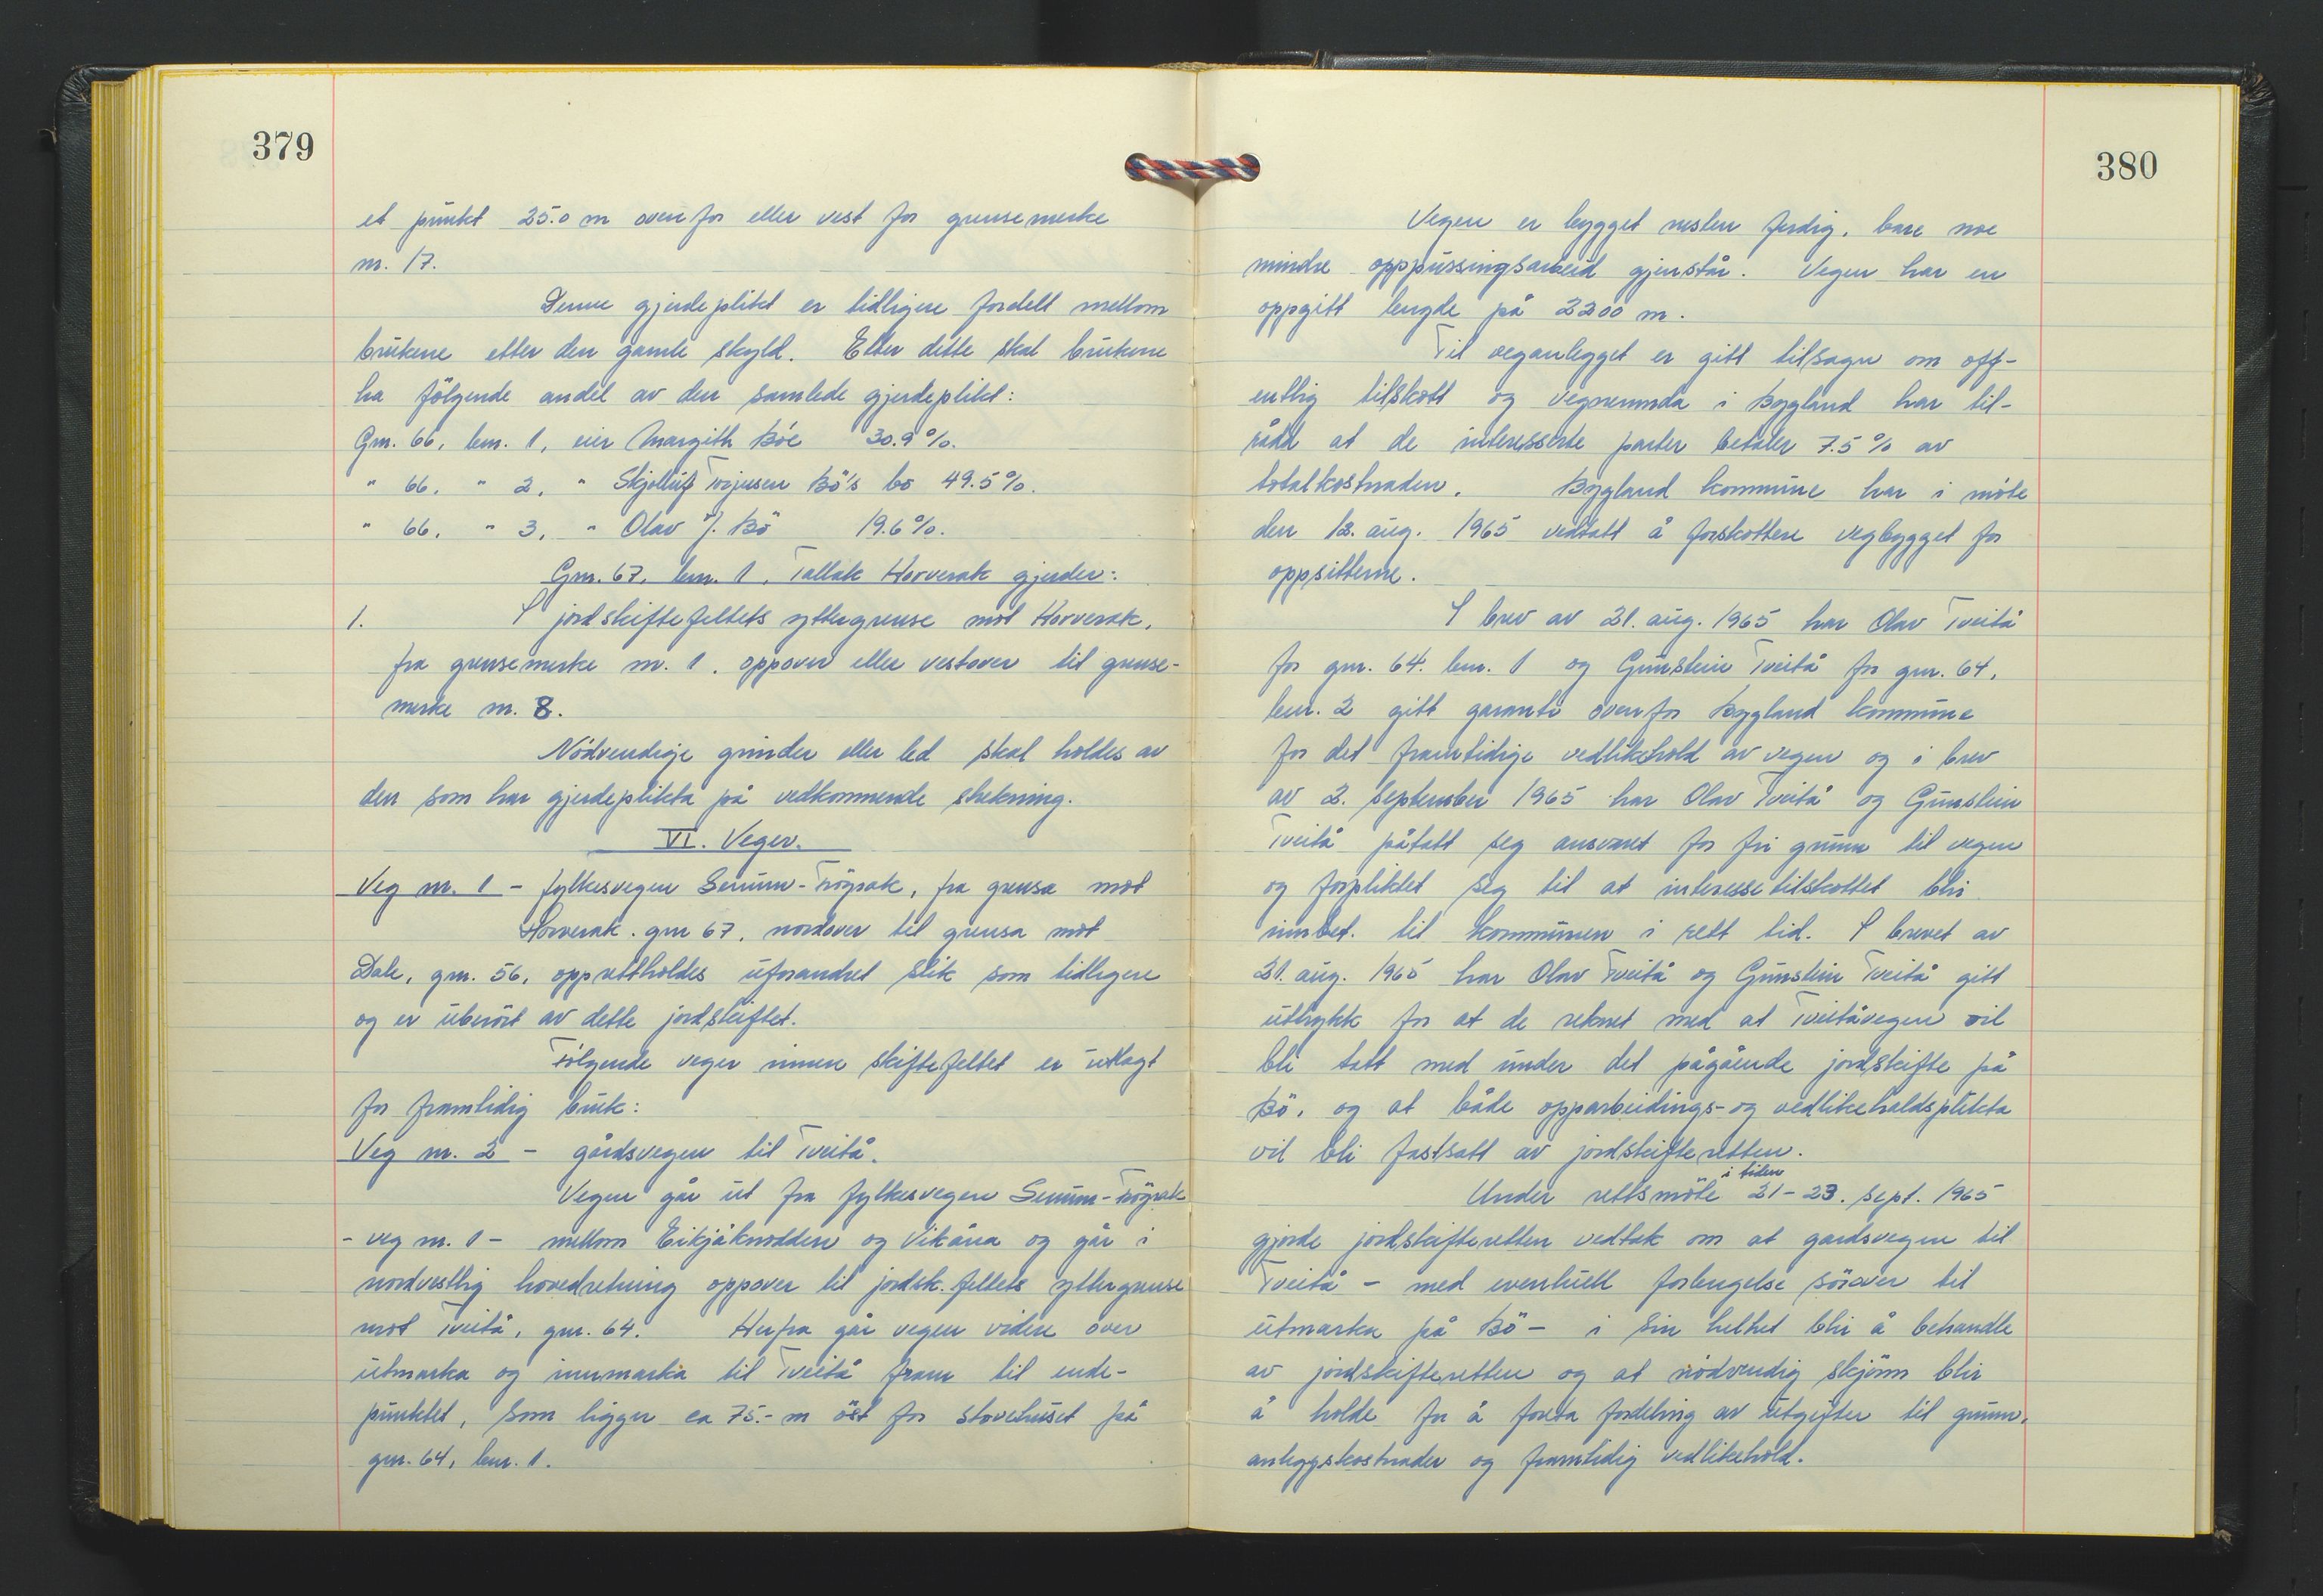 379
et punkt 25.0 m ovenfor eller vest for grensemerke
nr. 17.
Denne gjerdeplikt er tidligere fordelt mellom
brukene etter den gamle skyld. Etter dette skal brukene
ha følgende andel av den samlede gjerdeplikt:
Gnr. 66, bnr. 1, eier Margith Bøe 30.9 %.
" 66, " 2, " Skjelluf Torjusen Bø's bo 49.5 %.
" 66, " 3, " Olav J. Bø 19.6 %.
Gnr. 67, bnr. 1, Tallak Horverak gjerder:
1. I jordskiftefeltets yttergrense mot Horverak,
fra grensemerke nr. 1, oppover eller vestover til grense-
merke nr. 8.
Nødvendige grinder eller led skal holdes av
den som har gjerdeplikta på vedkommende strekning.
VI. Veger.
Veg nr. 1 - fylkesvegen Senum-Frøysak, fra grensa mot
Horverak. gnr 67, nordover til grensa mot
Dale, gnr. 56, opprettholdes uforandret slik som tidligere
og er uberørt av dette jordskiftet.
Følgende veger innen skiftefeltet er utlagt
for framtidig bruk:
Veg nr. 2 - gårdsvegen til Tveitå.
Vegen går ut fra fylkesvegen Senum-Frøysak
- veg nr. 1 - mellom Eikjåknodden og Vikåna og går i
nordvestlig hovedretning oppover til jordsk.feltets yttergrense
mot Tveitå, gnr. 64. Herfra går vegen videre over
utmarka og innmarka til Tveitå fram til ende-
punktet, som ligger ca 75.- m øst for stovehuset på
gnr. 64, bnr. 1.
380
Vegen er bygget nesten ferdig, bare noe
mindre opppussingsarbeid gjenstår. Vegen har en
oppgitt lengde på 2200 m.
Til veganlegget er gitt tilsagn om off-
entlig tilskott og vegnemnda i Bygland har til-
rådd at de interesserte parter betaler 7.5 % av
totalkostnaden. Bygland kommune har i møte
den 12. aug. 1965 vedtatt å forskottere vegbygget for
oppsitterne.
I brev av 21. aug. 1965 har Olav Tveitå
for gnr. 64. bnr. 1 og Gunstein Tveitå for gnr. 64,
bnr. 2 gitt garanti ovenfor Bygland kommune
for det framtidige vedlikehold av vegen og i brev
av 2. september 1965 har Olav Tveitå og Gunstein
Tveitå påtatt seg ansvaret for fri grunn til vegen
og forpliktet seg til at interessetilskottet blir
innbet. til kommunen i rett tid. I brevet av
21. aug. 1965 har Olav Tveitå og Gunstein Tveitå gitt
uttrykk for at de reknet med at Tveitåvegen vil
bli tatt med under det pågående jordskifte på
Bø, og at både opparbeidings- og vedlikeholdsplikta
vil bli fastsatt av jordskifteretten.
Under rettsmøte i tiden 21-23. sept. 1965
gjorde jordskifteretten vedtak om at gardsvegen til
Tveitå - med eventuell forlengelse sørover til
utmarka på Bø - i sin helhet blir å behandle
av jordskifteretten og at nødvendig skjønn blir
å holde for å foreta fordeling av utgifter til grunn,
anleggskostnader og framtidig vedlikehold.